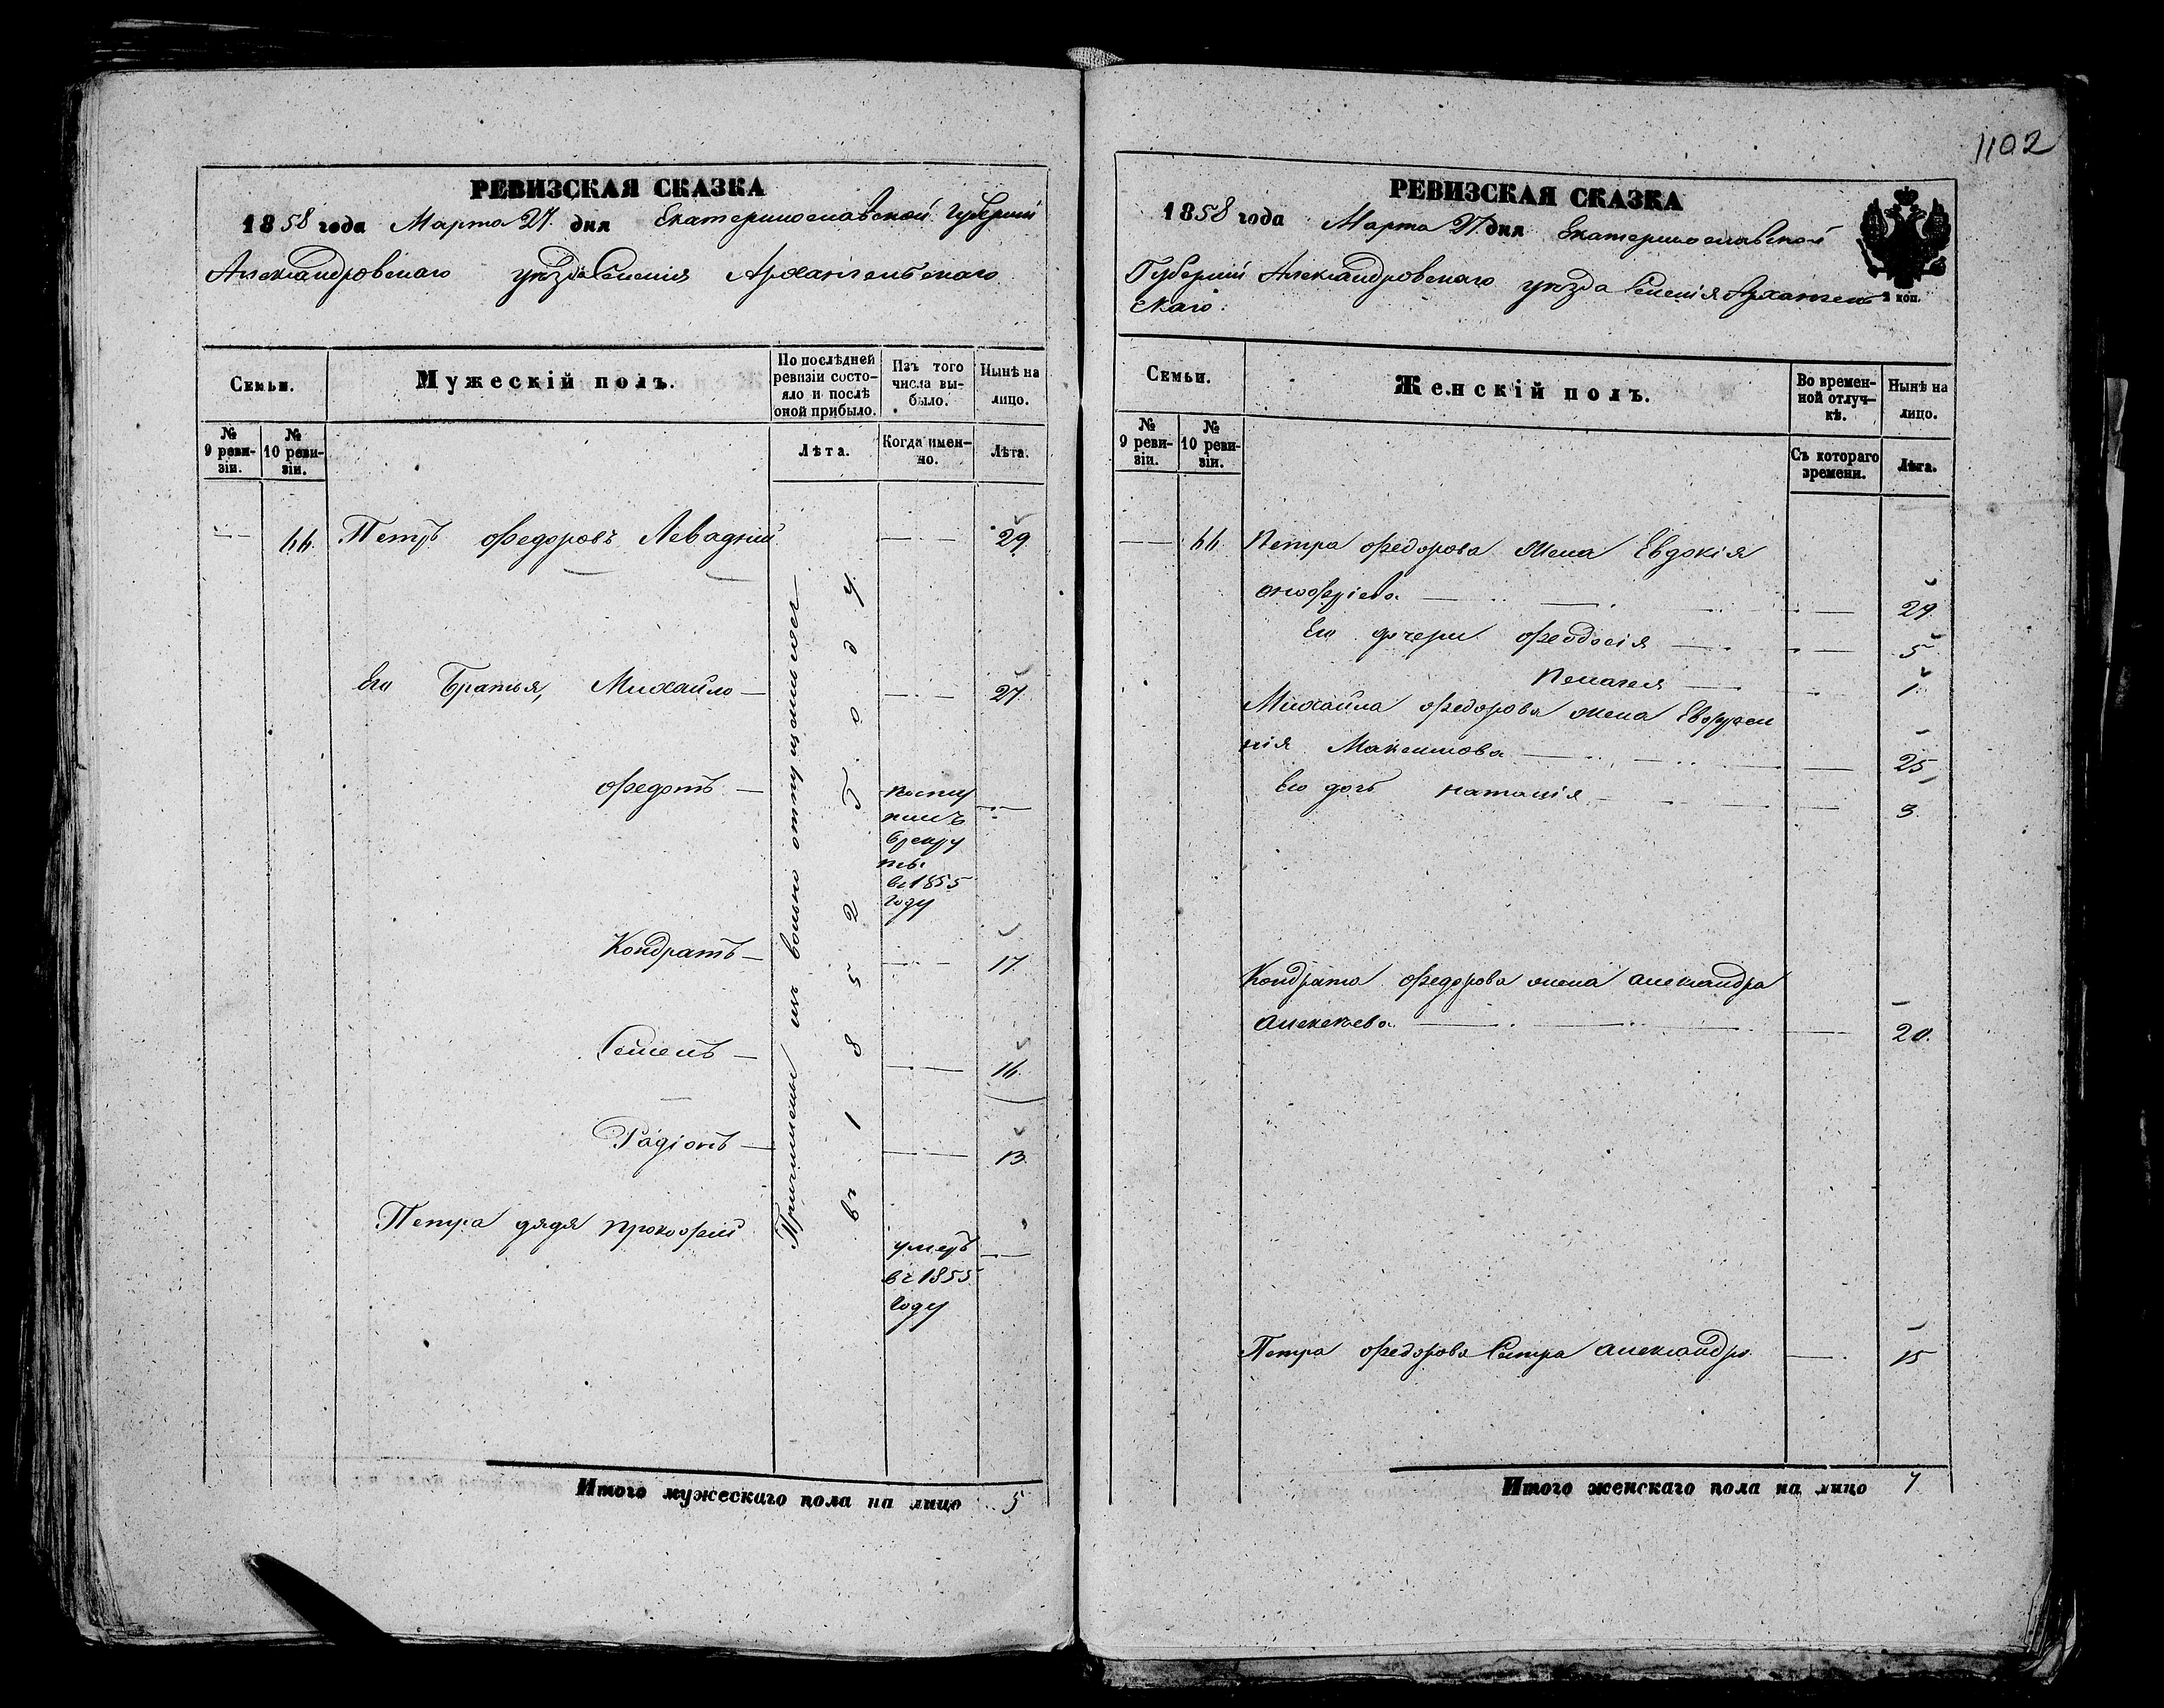 1102
РЕВИЗСКАЯ СКАЗКА
1858 года Марта 27 дня Екатеринославской Губерніи
Александровскаго уѣзда Селенія Архангельскаго
Семьи.
Мужескій полъ.
По послѣдней ревизіи состо-
яло и послѣ
оной прибыло.
Изъ того
числа вы-
было.
Нынѣ на
лицо.
№
9 реви-
зіи.
№
10 реви-
зіи.
Лѣта.
Когда имен-
но.
Лѣта.
66. Петръ Федоровъ Левадній 29
Его Братья, Михайло 27.
Федотъ
Посту
пилъ
в рекру
ты
въ 1855
году
Кондратъ 17.
Семенъ 16.
Радіонъ 13.
Петра дядя Прокофій
умеръ
въ 1855
году
Причислены изъ вольно отпущенныхъ
въ 1852 Году
Итого мужескаго пола на лицо 5
РЕВИЗСКАЯ СКАЗКА
1858 года Марта 27 дня Екатеринославской
Губерніи Александровскаго уѣзда Селенія Архангель
скаго.
2 коп.
Семьи.
Женскій полъ.
Во времен-
ной отлуч-
кѣ.
Нынѣ на
лицо.
№
9 реви-
зіи.
№
10 реви-
зіи.
Съ котораго
времени.
Лѣта.
66. Петра Федорова жена Евдокія
Онофріева 29.
Его дочери Феодосія 5
Пелагея 1.
Михайла Федорова жена Евфросин
нія Максимова 25
Его дочь Наталія 3.
Кондрата Федорова жена Александра
Алексѣева 20.
Петра Федорова Сестра Александра 15
Итого женскаго пола на лицо 7